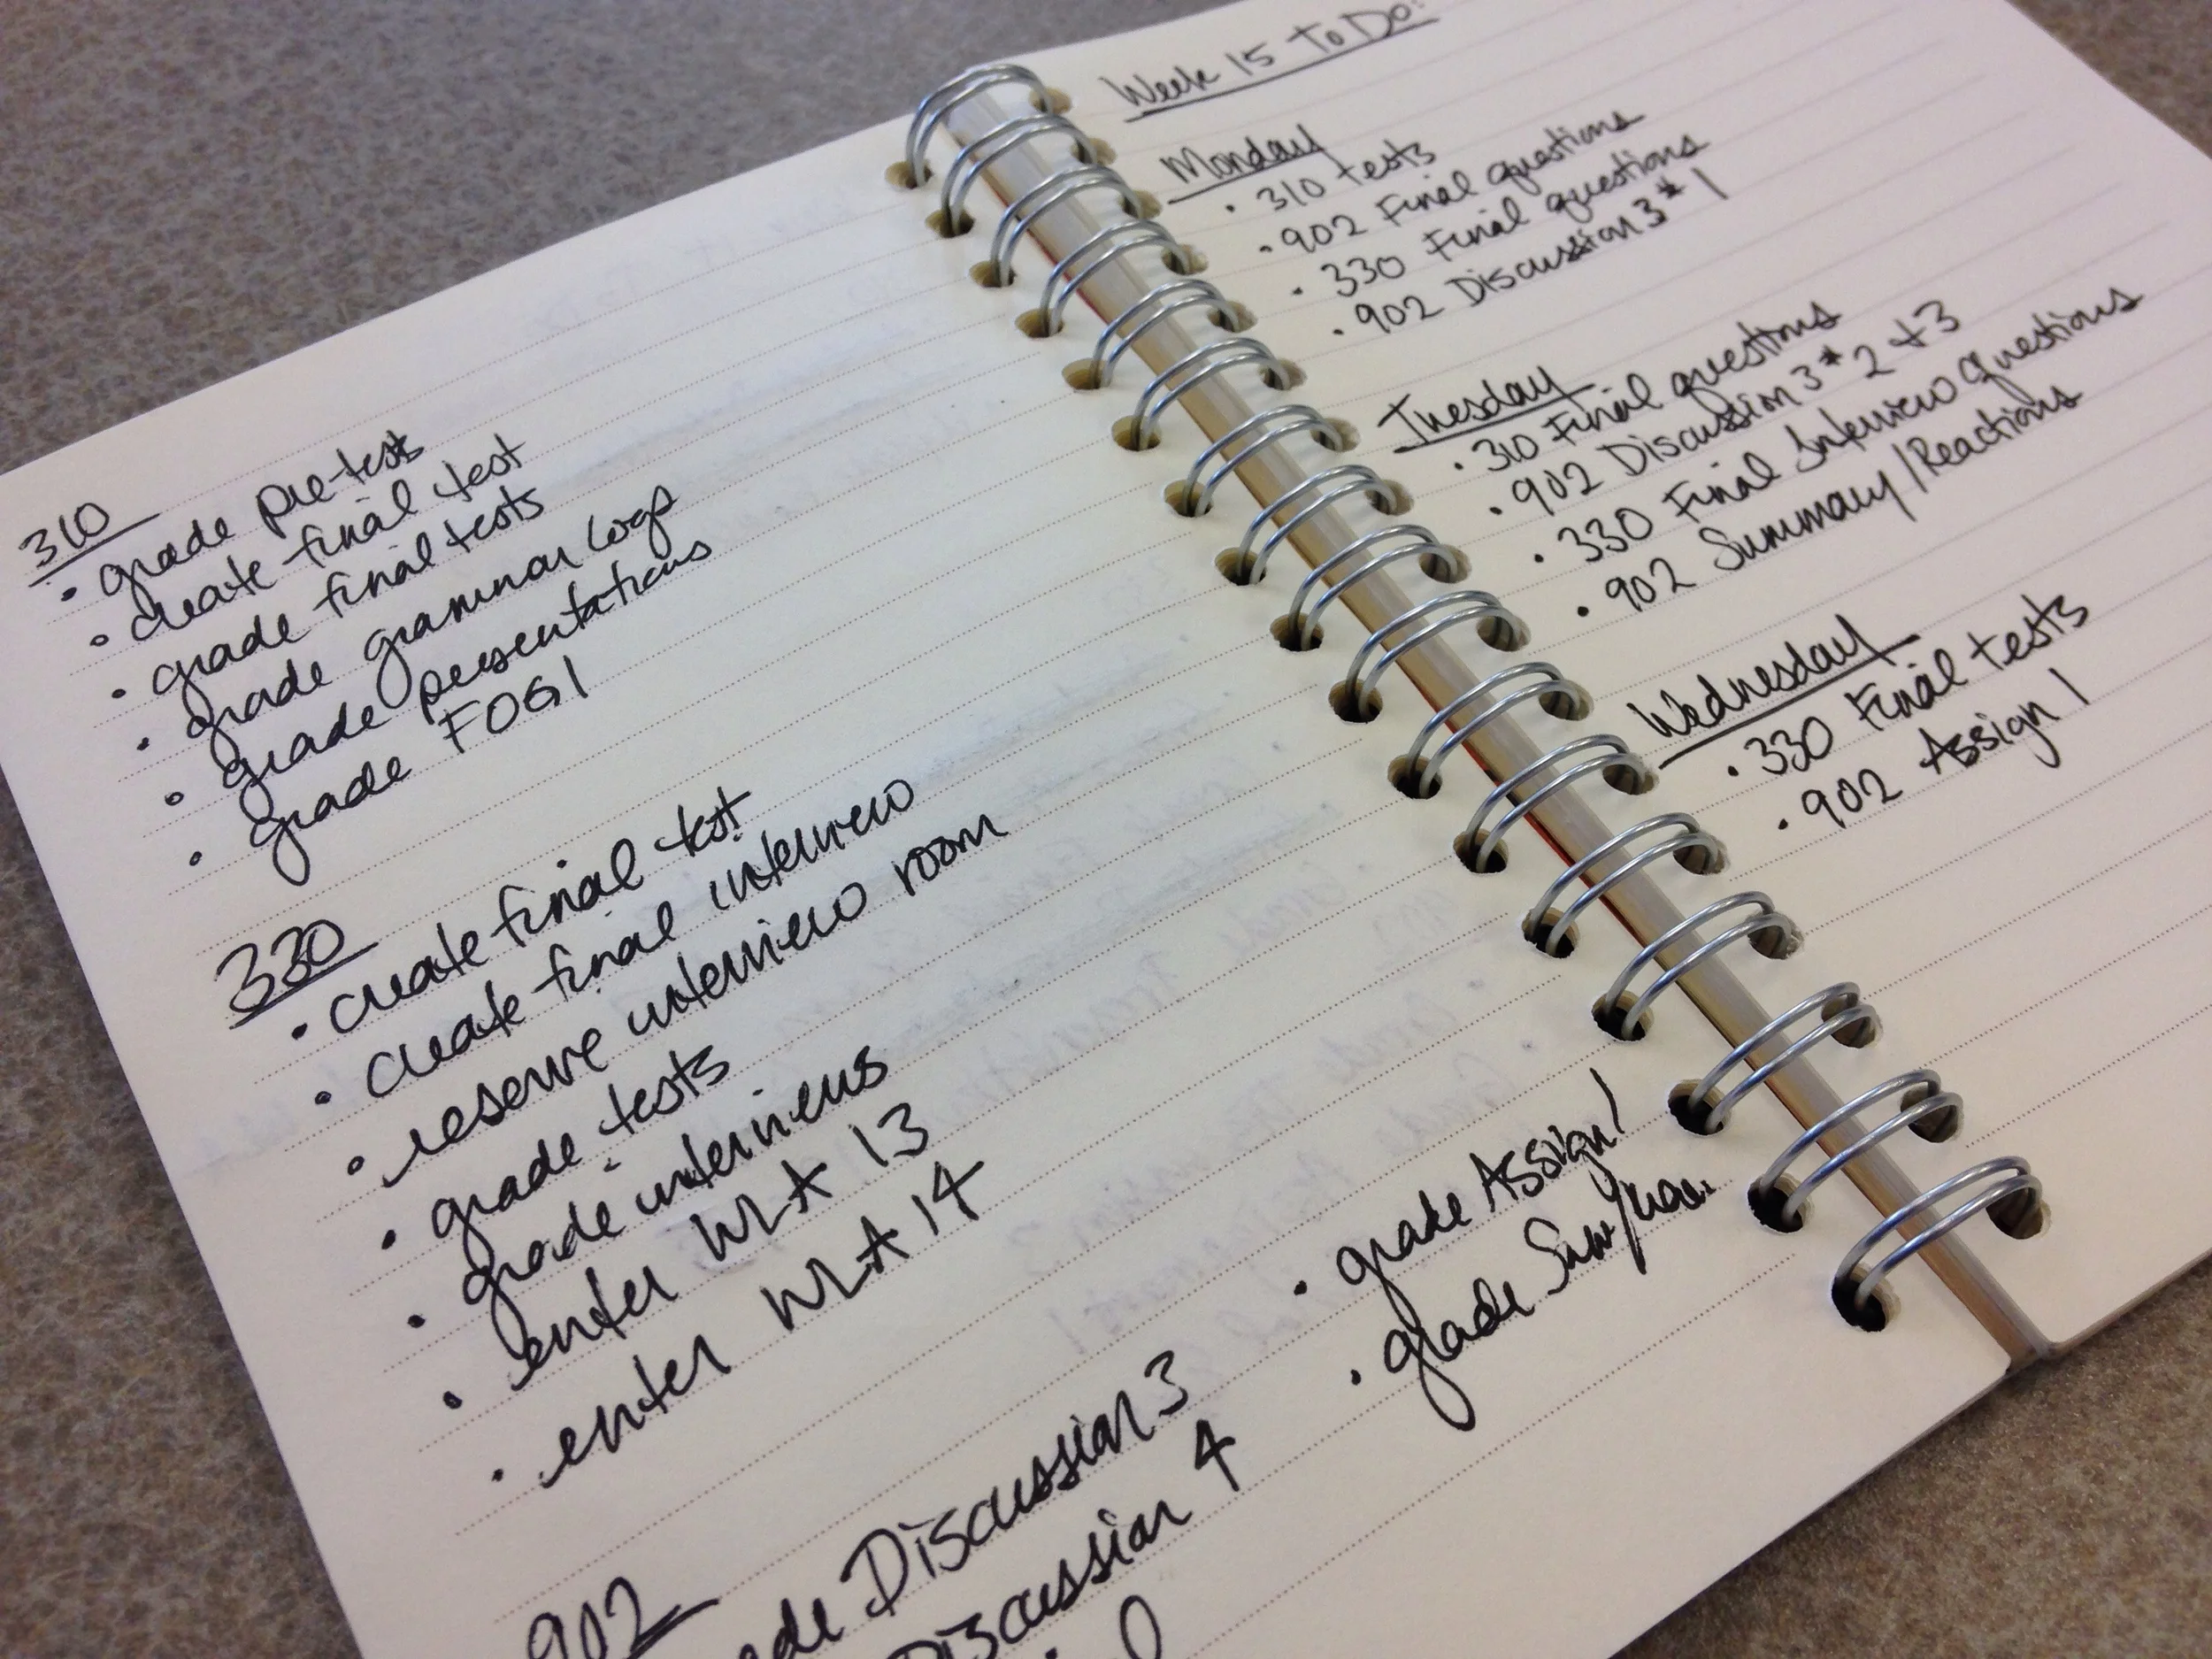 310
• grade pre-tests
• create final test
• grade final tests
• grade grammar logs
• grade presentations
• grade FOG1
330
• create final test
• create final interview
• reserve interview room
• grade tests
• grade interviews
• enter WLA 13
• enter WLA 14
902
Discussion 3
Discussion 4
• grade Assign 1
• grade Sum/
Week 15 To Do:
Monday
• 310 tests
• 902 Final questions
• 330 Final questions
• 902 Discussion 3 # 1
Tuesday
• 310 Final questions
• 902 Discussion 3 # 2 + 3
• 330 Final Interview Questions
• 902 Summary/Reactions
Wednesday
• 330 Final tests
• 902 Assign 1